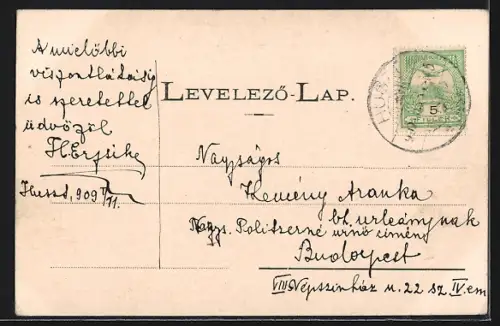 A mielőbbi
viszontlátásig
is szeretettel
üdvözöl
HErzsike
Huszt, 909 V/11.
LEVELEZŐ-LAP.
5
Nagyságos
Kemény Aranka
bt. urleánynak
Nags. Politzerné urnő címén
Budapest
VIII Népszinház u. 22 sz IV. em